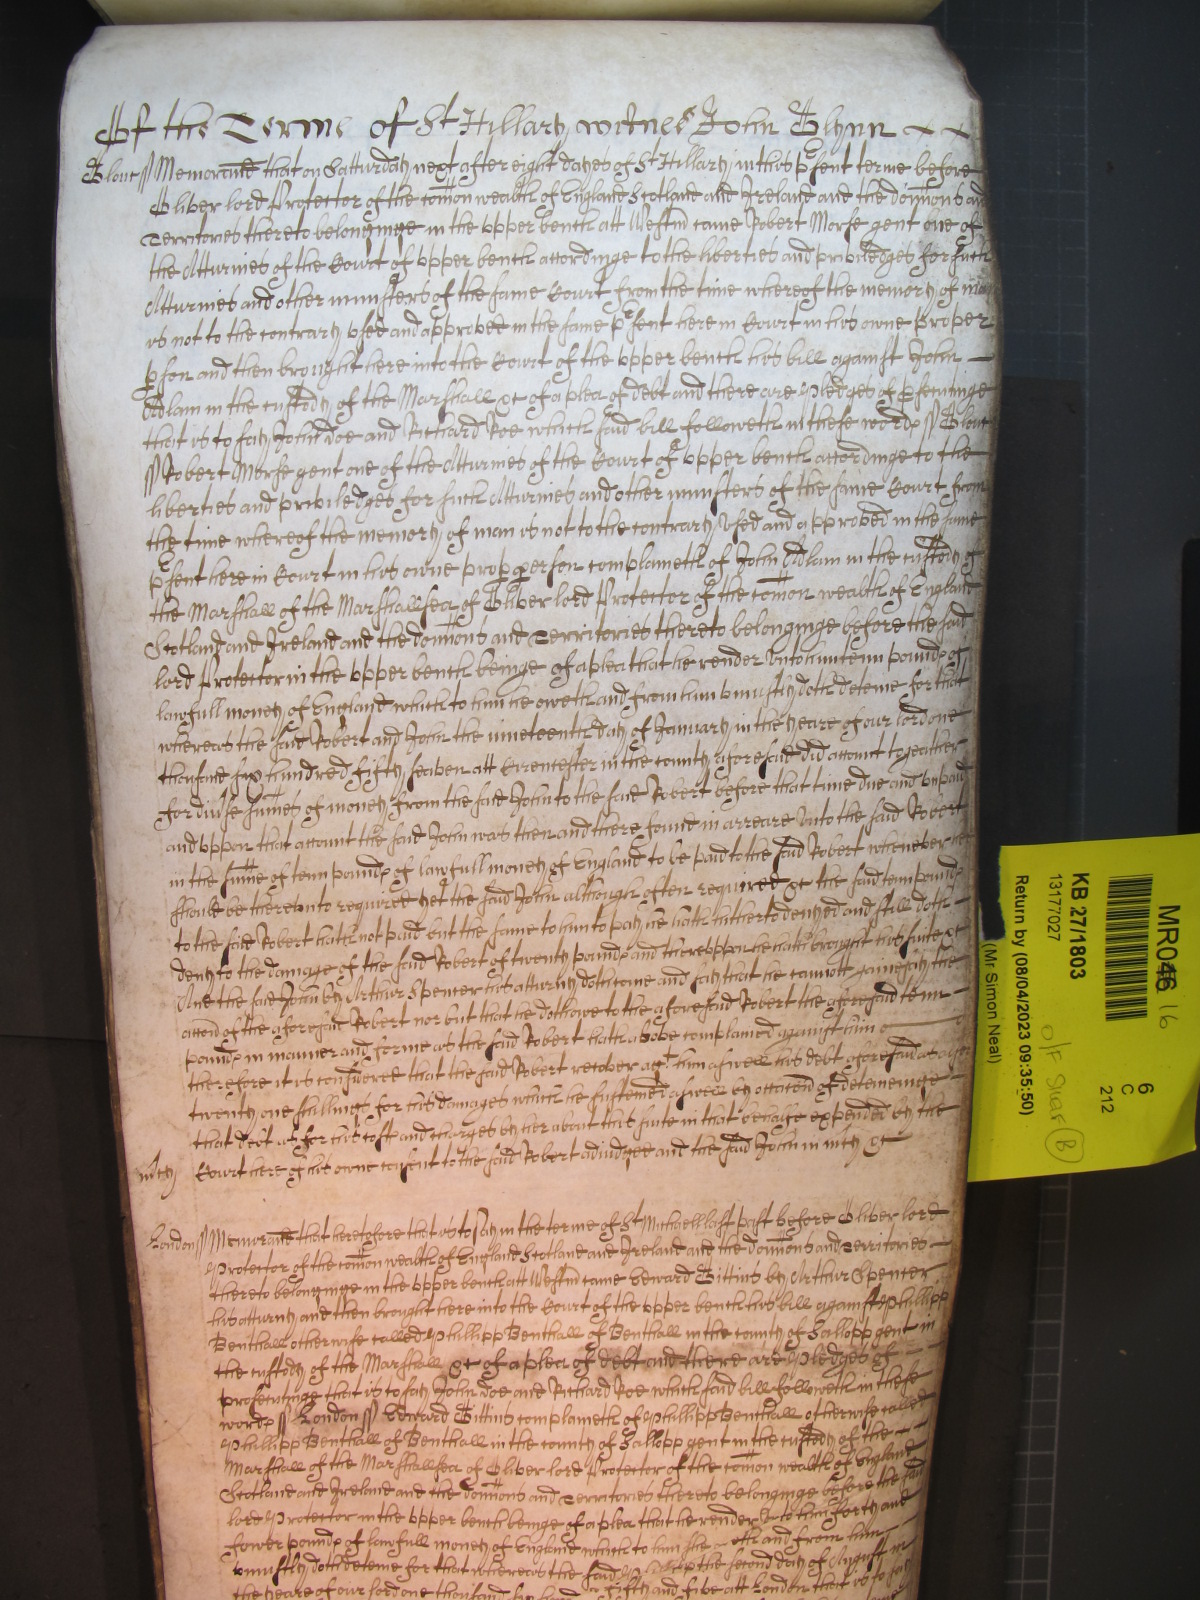 Of the Terme of St Hillary witnes John Glynn
Glouc Memorand that on Satturday next after eight dayes of St Hillary in this psent terme before
Oliver lord Protector of the comon wealth of England Scotland and Ireland and the domions and
Territories thereto belonginge in the upper bench att Westm came Robert Morse gent one of
the Atturnies of the Court of upper bench accordinge to the liberties and priviledges for such
Atturnies and other ministers of the same Court from the time whereof the memory of man
is not to the contrary used and approved in the same psent here in Court in his owne proper
pson and then brought here into the Court of the upper bench his bill against John
Adlam in the custody of the Marshall &c of a plea of debt and there are Pledges of psecutinge
that is to say John Doe and Richard Roe which said bill followeth in these words Glouc
Robert Morse gent one of the Atturnies of the Court of upper bench accordinge to the
liberties and priviledges for such Atturnies and other ministers of the same Court from
the time whereof the memory of man is not to the contrary used and approved in the same
psent here in Court in his owne prop person complaineth of John Adlam in the custody of
the Marshall of the Marshallsea of Oliver lord Protector of the comon wealth of England
Scotland and Ireland and the domions and Territories thereto belonginge before the said
lord Protector in the upper bench beinge of a plea that he render unto him tenn pounds of
lawfull money of England which to him he oweth and from him uniustly doth deteine for that
whereas the said Robert and John the nineteenth day of January in the yeare of our lord one
thousand six hundred fifty seaven att Cirencester in the county aforesaid did account togeather
for divse sumes of money from the said John to the said Robert before that time due and unpaid
and uppon that account the said John was then and there found in arreare unto the said Robert
in the sume of tenn pounds of lawfull money of England to be paid to the said Robert whenever he
should be thereunto required yet the said John although often required &c the said tenn pounds
to the said Robert hath not paid but the same to him to pay he hath hitherto denyed and still doth
deny to the damage of the said Robert of twenty pounds and thereuppon he hath brought this suite &c
And the said John by Arthur Spencer his atturny doth come and say that he cannott gainesay the
accon of the aforesaid Robert nor but that he doth owe to the aforesaid Robert the aforesaid tenn
pounds in manner and forme as the said Robert hath above complained against him
therefore it is considered that the said Robert recover agt him aswell his debt aforesaid as
twenty one shillings for his damages which he susteined aswell by occacon of deteineinge
that debt as for his cost and charges by her about his suite in that behalfe expended by the
Court here of his owne consent to the said Robert adiudged and the said John in mcy &c
mcy
London Memorand that heretofore that is to say in the terme of St Michaell last past before Oliver lord
Protector of the comon wealth of England Scotland and Ireland and the domions and Territories
thereto belonginge in the upper bench att Westm came Edward Gittins by Arthur Spencer
his atturny and then brought here into the Court of the upper bench his bill against Phillipp
Benthall otherwise called Phillipp Benthall of Benthall in the county of Sallopp gent in
the custody of the Marshall &c of a plea of debt and there are Pledges of
prosecutinge that is to say John Doe and Richard Roe which said bill followeth in these
words London Edward Gittins complaineth of Phillipp Benthall otherwise called
Phillipp Benthall of Benthall in the county of Sallopp gent in the custody of the
Marshall of the Marshallsea of Oliver lord Protector of the comon wealth of England
Scotland and Ireland and the domions and Territories thereto belonginge before the said
lord Protector in the upper bench beinge of a plea that he render unto him forty and
fower pounds of lawfull money of England which to him he oweth and from him
uniustly doth deteine for that whereas the said Phillipp the second day of August in
the yeare of our lord one thousand six hundred fifty and five att London that is to say
MR046 16
KB 27/1803
13177027
Return by (08/04/2023 09:35:50)
(Mr Simon Neal)
6
C
212
O/F Shelf B